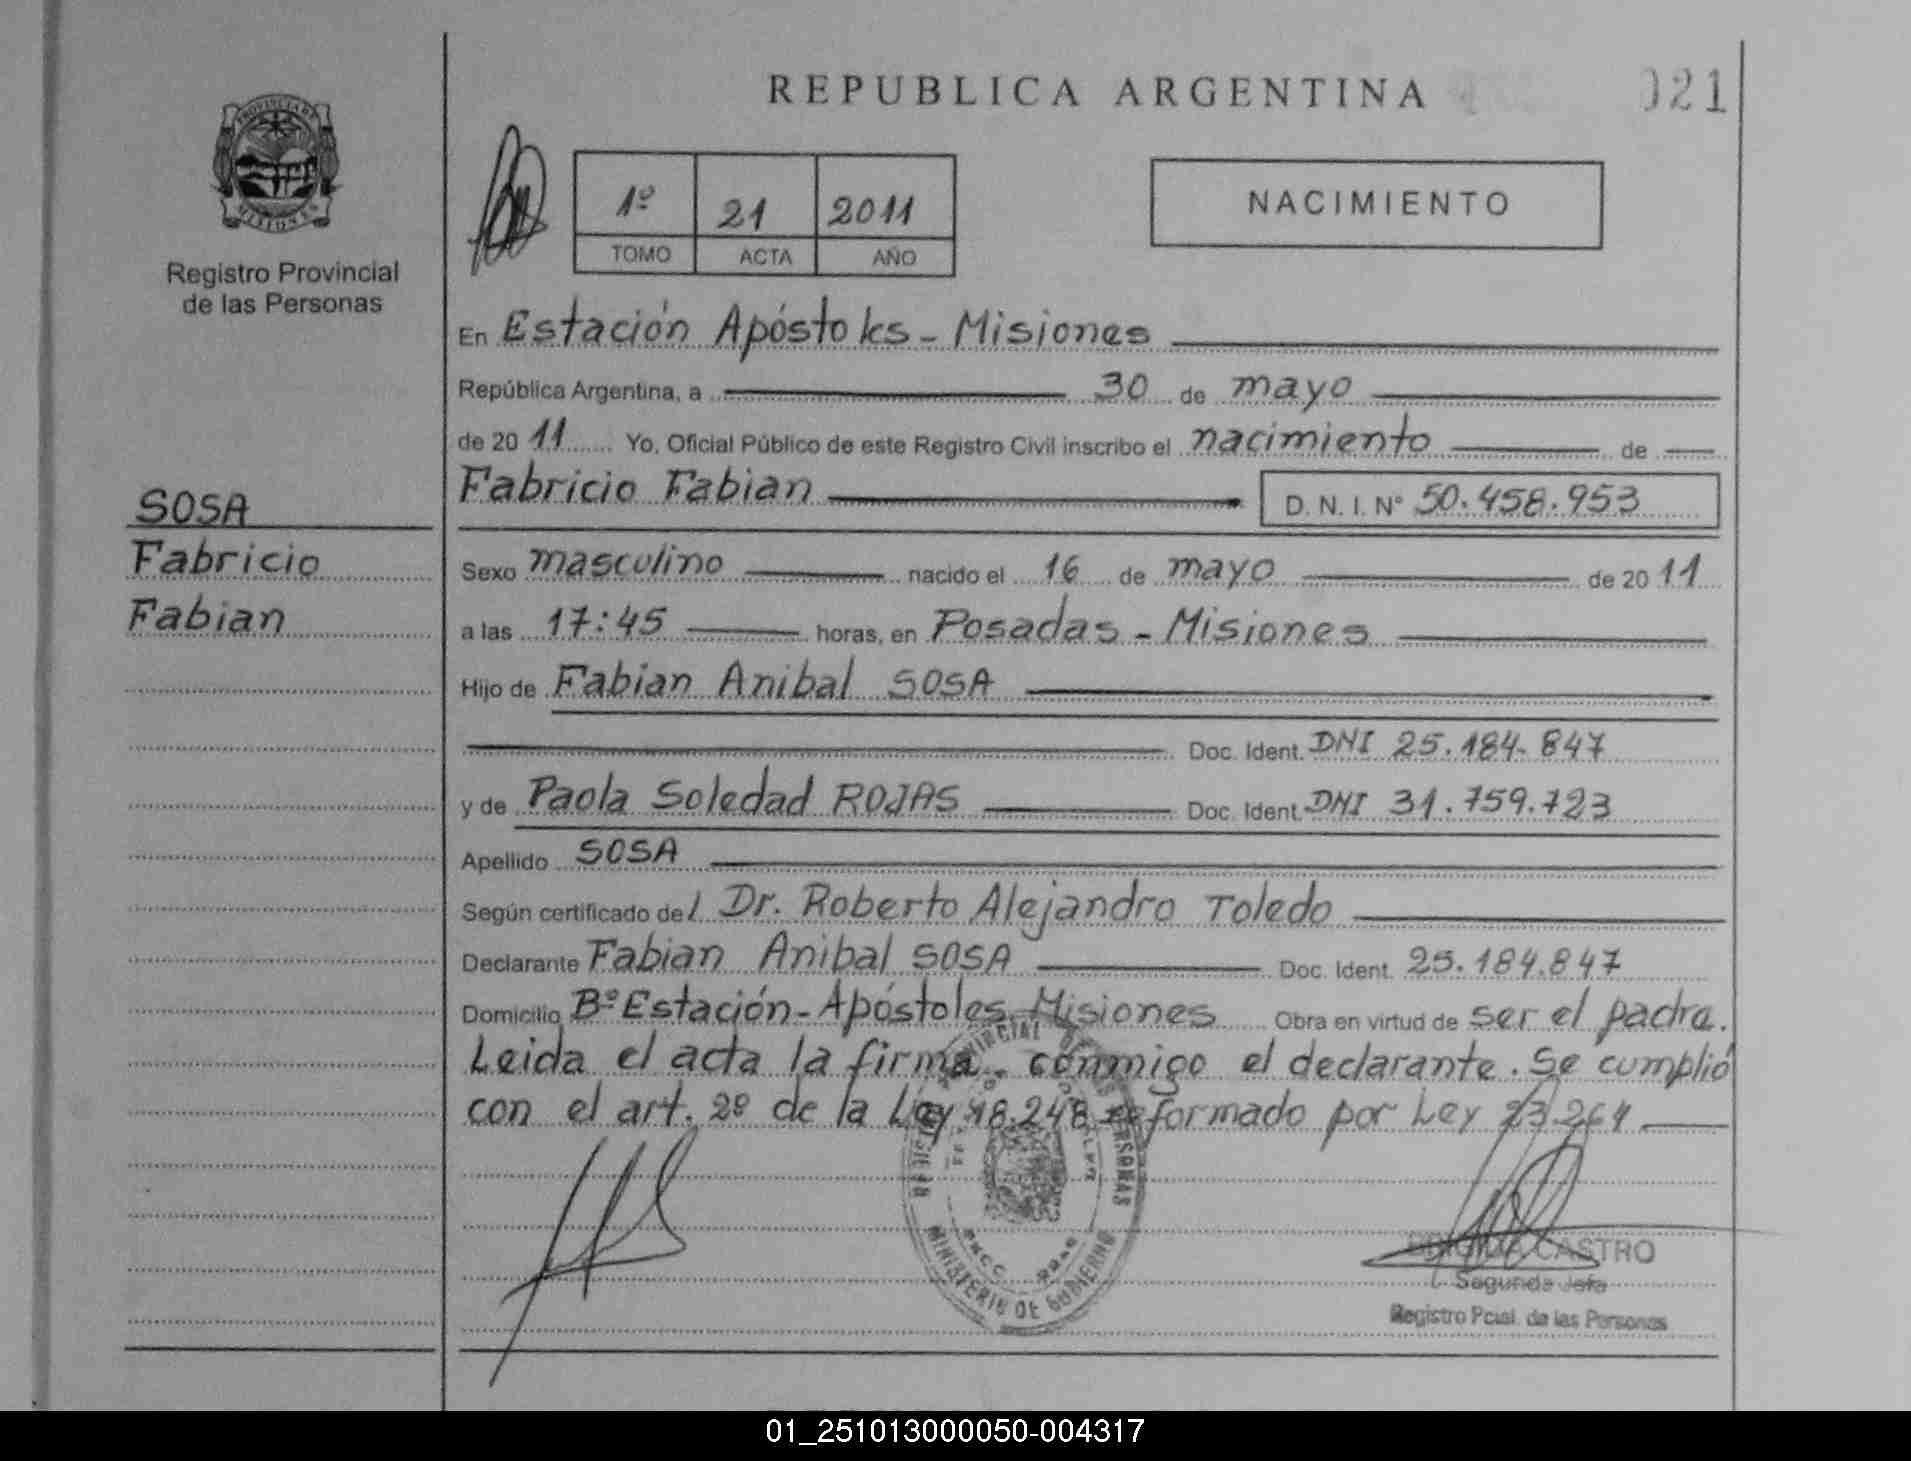 REPUBLICA ARGENTINA
021
PROVINCIA DE
MISIONES
Registro Provincial
de las Personas
1º 21 2011
TOMO ACTA AÑO
NACIMIENTO
En Estación Apóstoles - Misiones
República Argentina, a 30 de mayo
de 2011 Yo, Oficial Público de este Registro Civil inscribo el nacimiento de
Fabricio Fabian D. N. I. Nº 50.458.953
SOSA
Fabricio
Fabian
Sexo masculino nacido el 16 de mayo de 2011
a las 17:45 horas, en Posadas - Misiones
Hijo de Fabian Anibal SOSA
Doc. Ident. DNI 25.184.847
y de Paola Soledad ROJAS Doc. Ident. DNI 31.759.723
Apellido SOSA
Según certificado del Dr. Roberto Alejandro Toledo
Declarante Fabian Anibal SOSA Doc. Ident. 25.184.847
Domicilio Bº Estación - Apóstoles Misiones Obra en virtud de ser el padre.
Leida el acta la firma conmigo el declarante. Se cumplió
con el art. 2º de la Ley 18.248 reformado por Ley 23.264
MINISTERIO DE GOBIERNO
CASTRO
Segunda Jefa
Registro Pcial. de las Personas
01_251013000050-004317